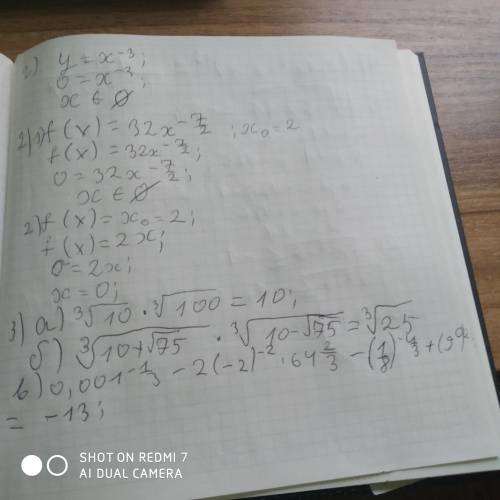 г) y = x⁻³;
0 = x⁻³;
x ∈ ∅
2) 1) f(x) = 32x^(-7/2) ; x₀ = 2
f(x) = 32x^(-7/2);
0 = 32x^(-7/2);
x ∈ ∅
2) f(x) = x₀ = 2;
f(x) = 2x;
0 = 2x;
x = 0;
3) а) ∛10 · ∛100 = 10;
б) ∛(10+√75) · ∛(10-√75) = ∛25
в) 0,001^(-1/3) - 2(-2)⁻² · 64^(2/3) - (1/8)^(-4/3) + (9⁰
= -13;
SHOT ON REDMI 7
AI DUAL CAMERA